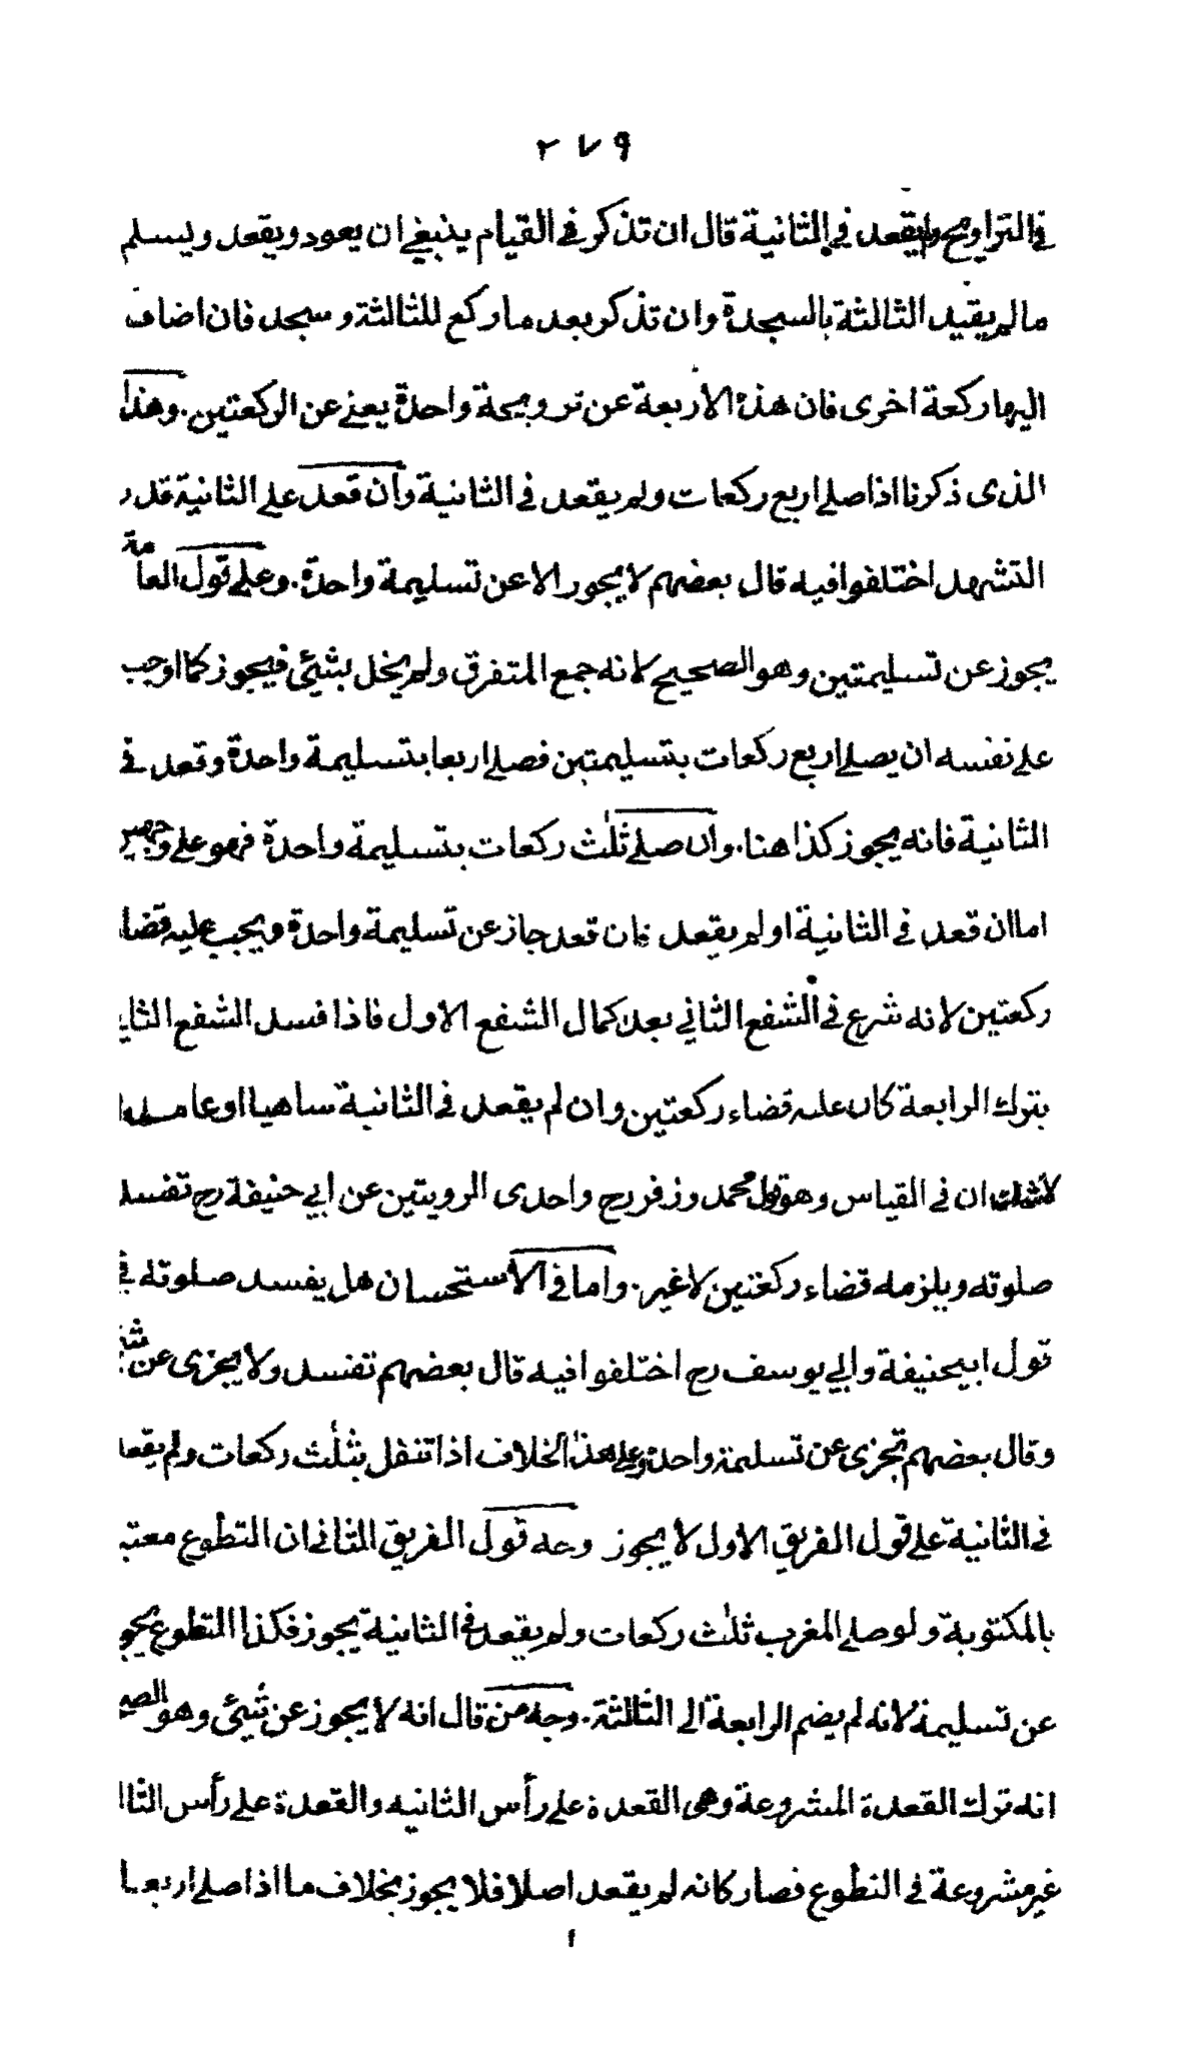 ٢٧٩
في التراويح ولم يقعد في الثانية قال ان تذكر في القيام ينبغي ان يعود ويقعد ويسلم
مالم يقيد الثالثة بالسجدة وان تذكر بعد ما ركع للثالثة وسجد فان اضاف
اليها ركعة اخرى فان هذه الاربعة عن ترويحة واحدة يعني عن الركعتين. وهذا
الذى ذكرنا اذا صلى اربع ركعات ولم يقعد في الثانية وان قعد على الثانية قدر
التشهد اختلفوا فيه قال بعضهم لا يجوز الا عن تسليمة واحدة. وعلى قول العامة
يجوز عن تسليمتين وهو الصحيح لانه جمع المتفرق ولم يخل بشيئ فيجوز كما اوجب
على نفسه ان يصلى اربع ركعات بتسليمتين فصلى اربعا بتسليمة واحدة وقعد في
الثانية فانه يجوز كذا هنا. وان صلى ثلٰث ركعات بتسليمة واحدة فهو على وجهين
اما ان قعد في الثانية او لم يقعد فان قعد جاز عن تسليمة واحدة ويجب عليه قضا
ركعتين لانه شرع في الشفع الثاني بعد كمال الشفع الاول فاذا فسد الشفع الثاني
بترك الرابعة كان عليه قضاء ركعتين وان لم يقعد في الثانية ساهيا او عامدا
لاشك ان في القياس وهو قول محمد وزفر رح واحدى الرويتين عن ابي حنيفة رح تفسد
صلوته ويلزمه قضاء ركعتين لاغير. واما في الاستحسان هل يفسد صلوته في
قول ابيحنيفة وابي يوسف رح اختلفوا فيه قال بعضهم تفسد ولا يجزى عن شئ
وقال بعضهم تجزى عن تسليمة واحدة وعلى هذا الخلاف اذا تنفل بثلٰث ركعات ولم يقعد
في الثانية على قول الفريق الاول لا يجوز وجه قول الفريق الثاني ان التطوع معتبر
بالمكتوبة ولو صلى المغرب ثلٰث ركعات ولم يقعد في الثانية يجوز فكذا التطوع يجوز
عن تسليمة لانه لم يضم الرابعة الى الثالثة. وجه من قال انه لا يجوز عن شيئ وهو الصحيح
انه ترك القعدة المشروعة وهى القعدة على رأس الثانيه والقعدة على رأس الثالثة
غير مشروعة في التطوع فصار كانه لم يقعد اصلا فلا يجوز بخلاف ما اذا صلى اربعا